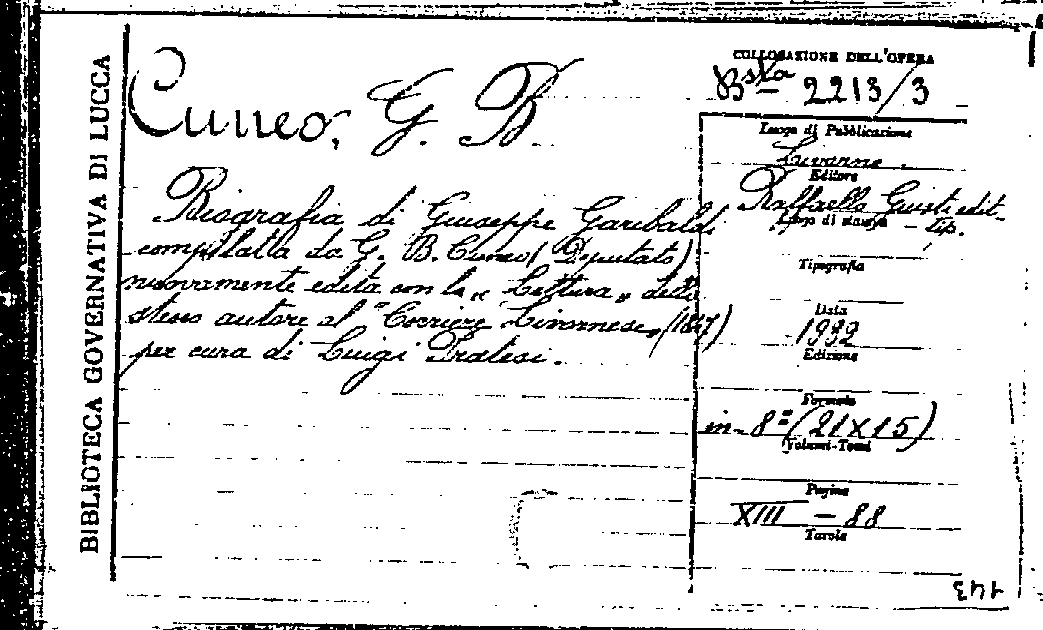 BIBLIOTECA GOVERNATIVA DI LUCCA
Cuneo, G. B.
Biografia di Giuseppe Garibaldi
compilatta da G. B. Cuneo (Deputato)
nuovamente edita con la "Lettura" dello
stesso autore al "Corriere Livornese" (1847)
per cura di Luigi Pratesi.
COLLOCAZIONE DELL'OPERA
Bsta 2213/3
Luogo di Pubblicazione
Livorno.
Editore
Raffaello Giusti edit.
Luogo di stampa
- tip.
Tipografia
Data
1932
Edizione
Formato
in-8° (21X15)
Volumi-Tomi
Pagine
XIII - 88
Tavole
143